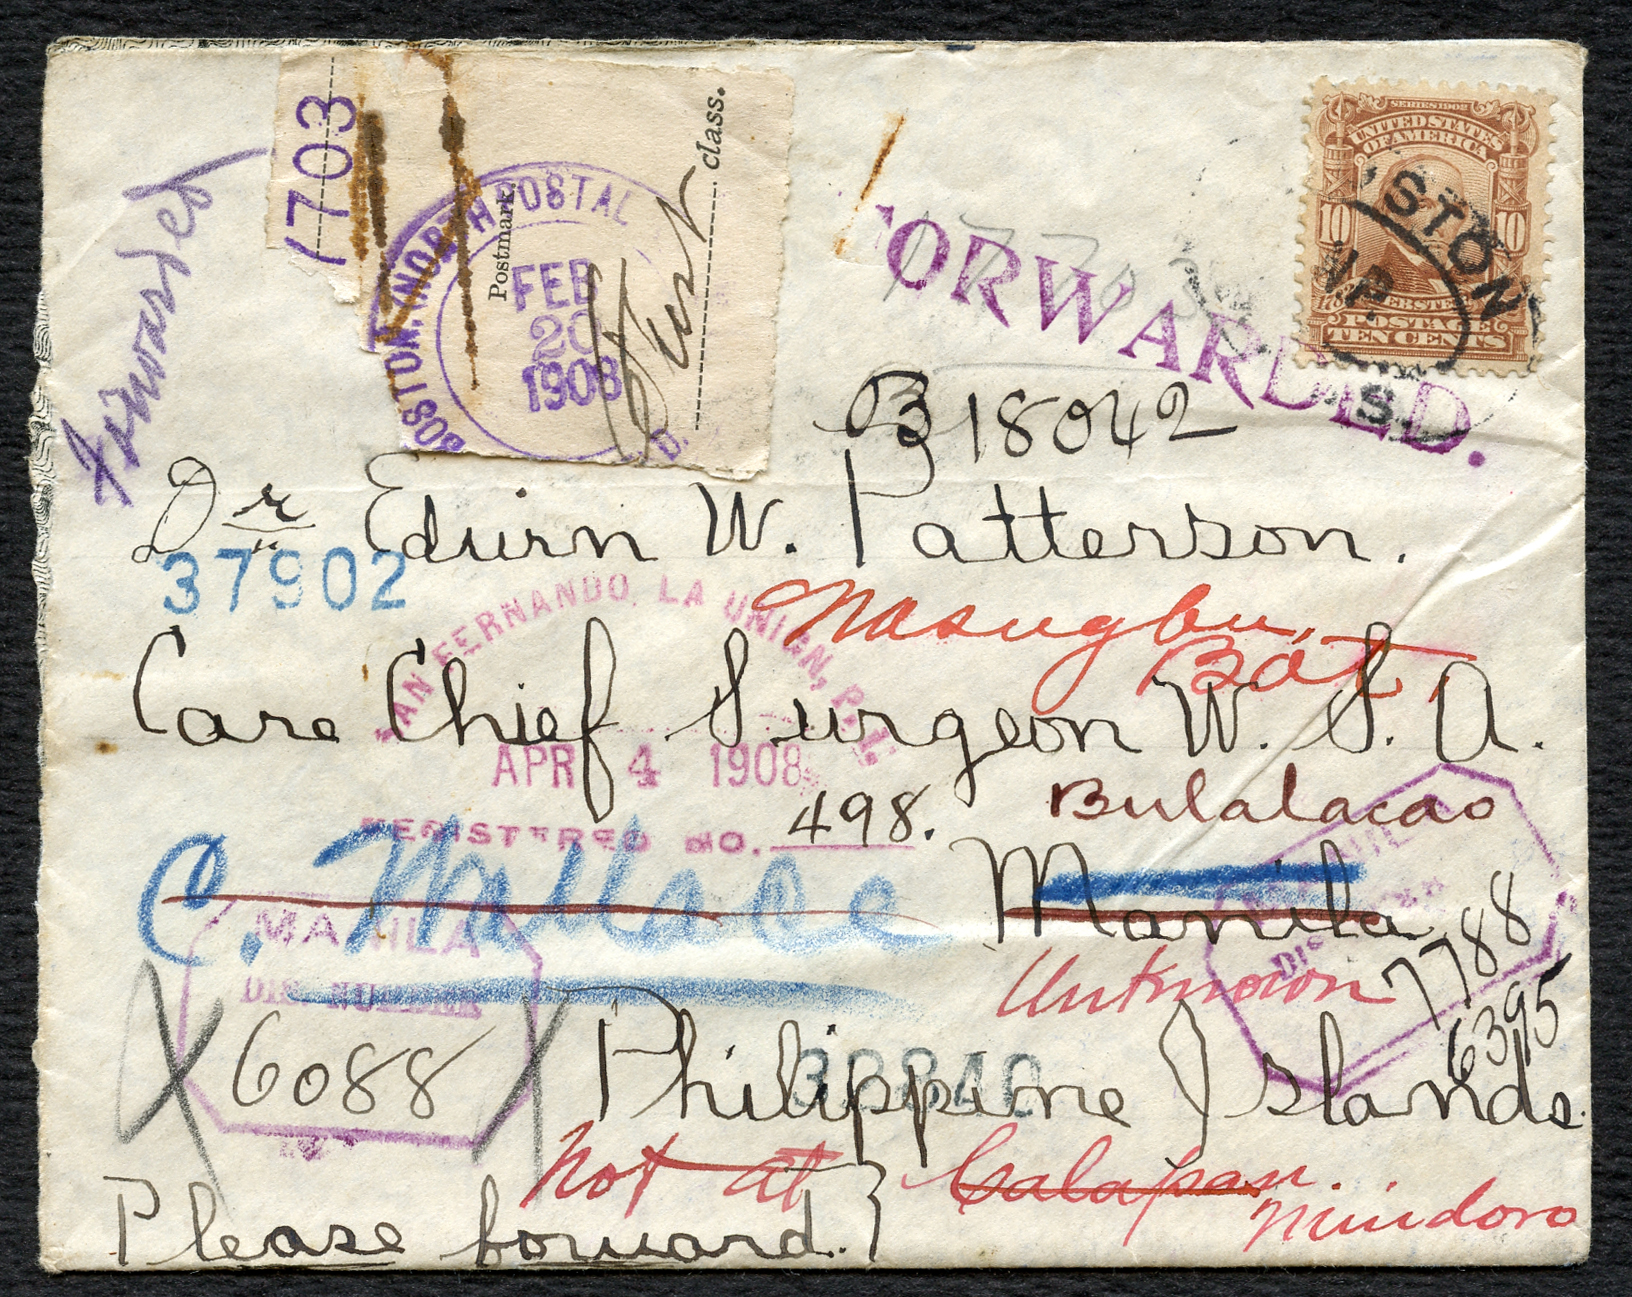 1703
Postmark
class.
First
BOSTON, (NORTH POSTAL
FEB
20
1908
D.
Forwarded
FORWARDED.
17703
SERIES 1902
UNITED STATES
OF AMERICA
10 10
WEBSTER
POSTAGE
TEN CENTS
STON
B 18042
Dr Edwin W. Patterson.
37902
Nasugbu,
Bat,
SAN FERNANDO, LA UNION, P. I.
APR 4 1908
REGISTERED NO. 498.
Care Chief Surgeon U. S. A.
Bulalacao
C. Wallace
Manila
MANILA
DIS. NUMBER
6088
Unknown
7788
6395
Philippine Islands.
Not at Calapan.
Mindoro
Please forward.